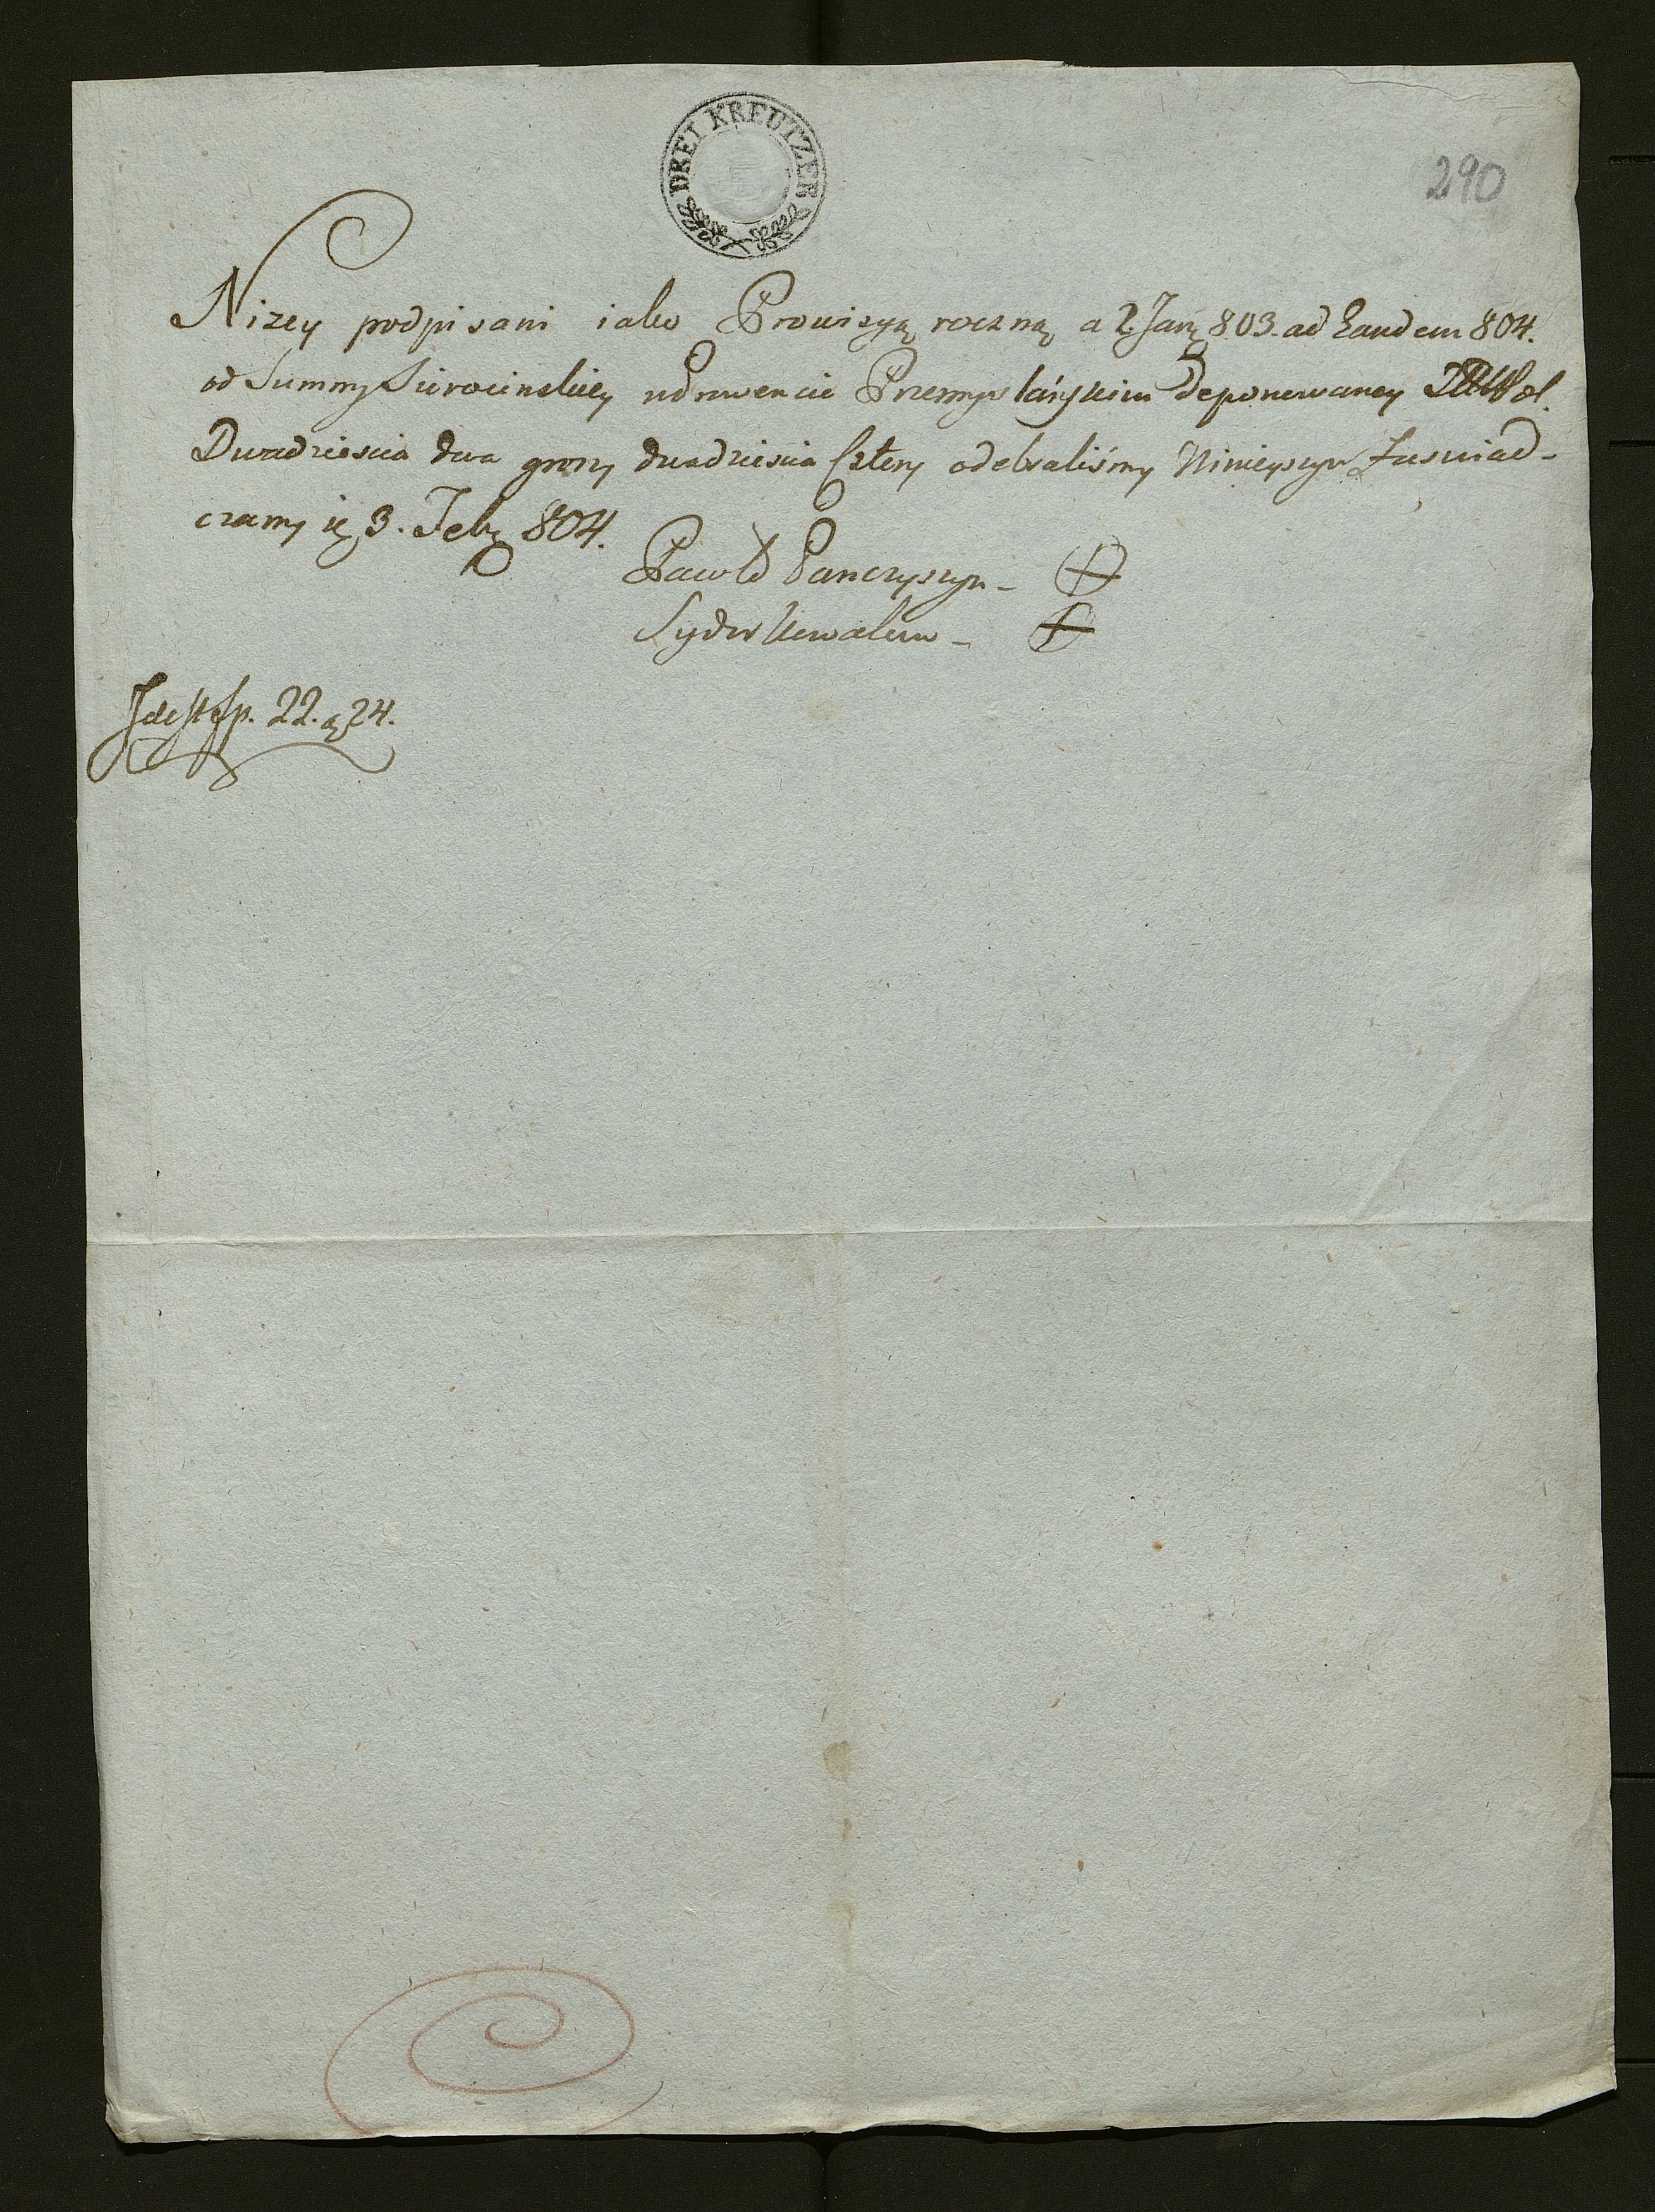 DREI KREUTZER
290
Nizey podpisani iako Prowizyą roczną a 2 Jany 803. ad Eandem 804.
od Summy Sierocinskiey w Konwencie Przemyslańskim deponowaney
Dwadziescia dwa groszy dwadziescia Cztery odebraliśmy Nineyszym Zaswiad-
czamy ię 3. Feby 804.
Pawlo Panczyszyn -
Sydor Kowaluw -
Idest fp. 22. g 24.